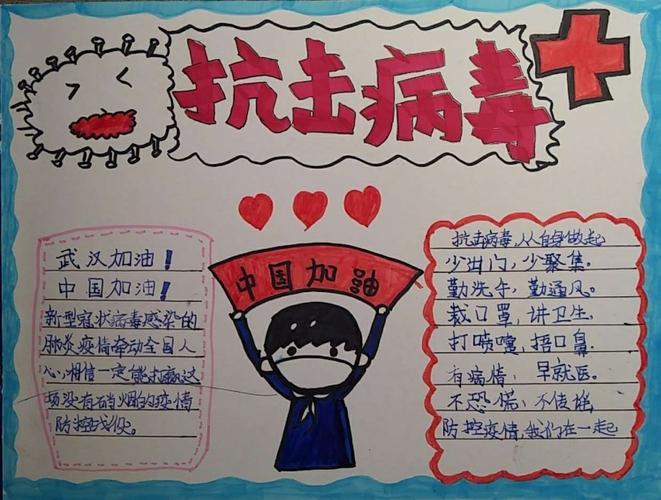 抗击病毒
中国加油
武汉加油！
中国加油！
新型冠状病毒感染的
肺炎疫情牵动全国人
心，相信一定能打赢这
场没有硝烟的疫情
防控战役。
抗击病毒，从自身做起
少出门，少聚集。
勤洗手，勤通风。
戴口罩，讲卫生。
打喷嚏，捂口鼻。
有病情，早就医。
不恐慌，不传谣
防控疫情，我们在一起